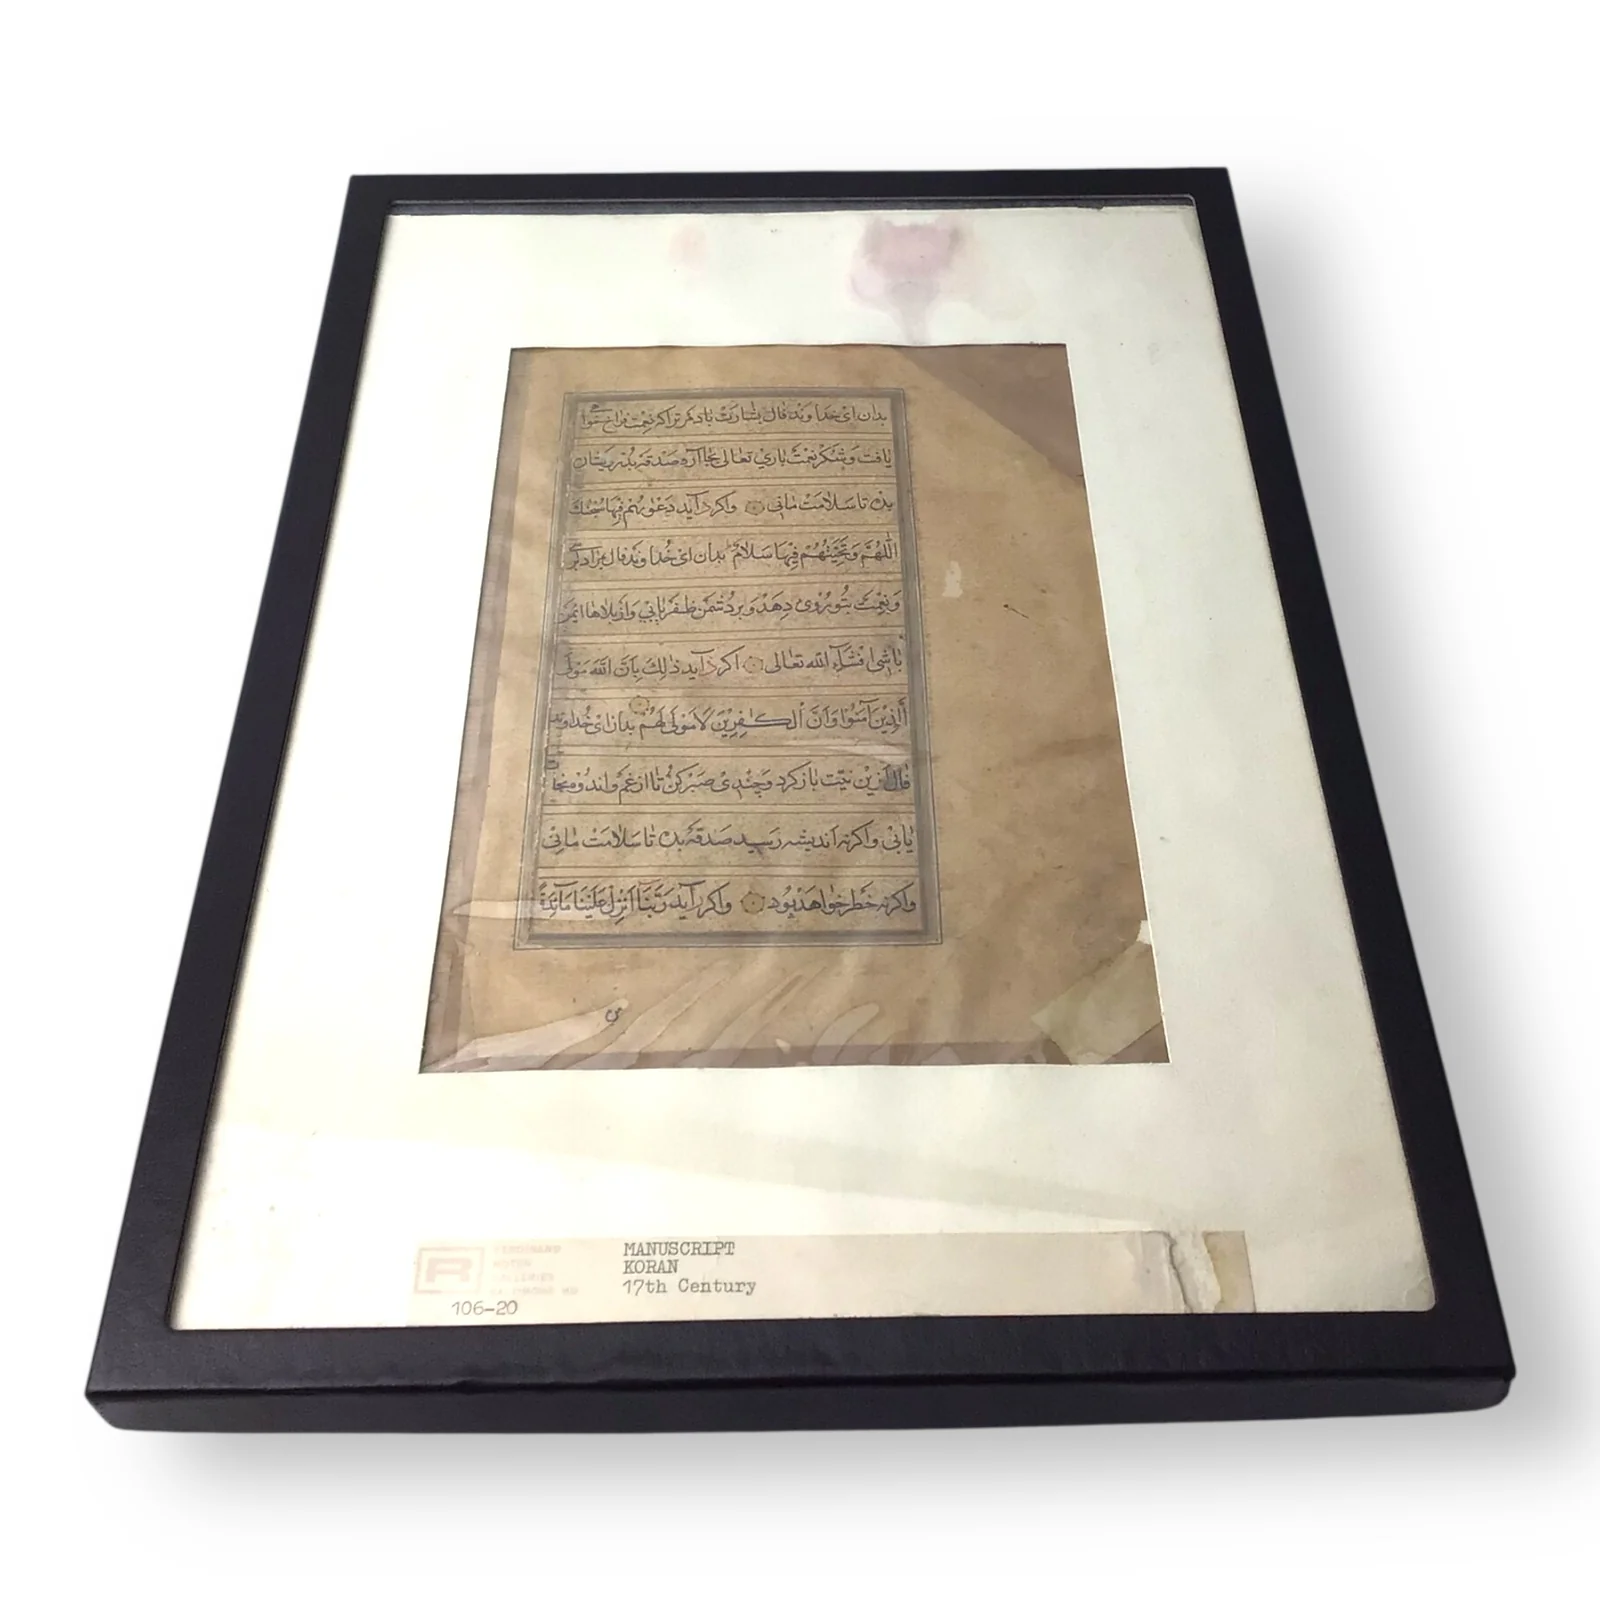 بدان ای خداوند فال بشارت باد مر ترا که نعمت فراخ خواهی
یافت و شکر نعمت باری تعالی بجا آر و صدقه بدرویشان
بده تا سلامت مانی واکر د آید دعوٰیهُم فِیهَا سُبْحٰنَكَ
اللّٰهُمَّ وَتَحِیَّتُهُمْ فِیهَا سَلَامٌ بدان ای خداوند فال
و نعمت بتو روی دهد و بر دشمن ظفر یابی و از بلاها ایمن
باشی انشآء الله تعالی اکر ذ آید ذٰلِكَ بِاَنَّ اللّٰهَ مَوْلَی
الَّذِینَ آمَنُوا وَاَنَّ الْكٰفِرِینَ لَا مَوْلٰی لَهُمْ بدان ای خداوند
فال ازین نیّت باز کرد و چندی صبر کن تا از غم و اندوه نجات
یابی و اکر نه اندیشه رسید صدقه بده تا سلامت مانی
واکر نه خطر خواهد بود واکر ر آید رَبَّنَا اَنْزِلْ عَلَیْنَا مَآئِدَةً
106-20
MANUSCRIPT
KORAN
17th Century